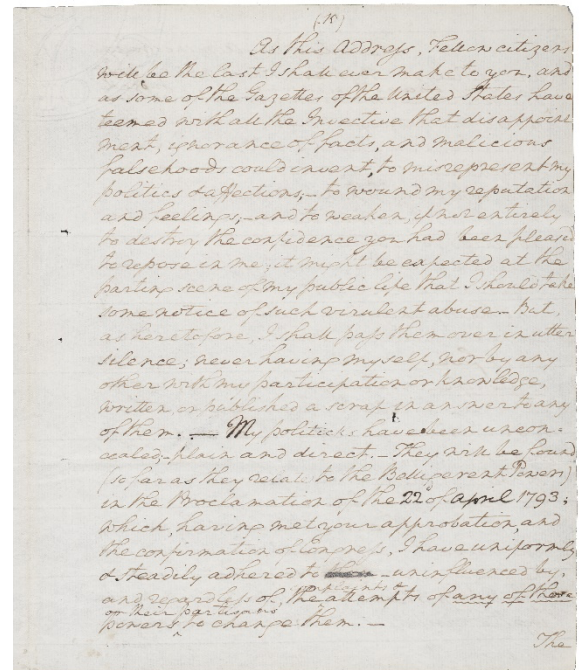 (15)
As this Address, Fellow citizens
will be the last I shall ever make to you, and
as some of the Gazettes of the United States have
teemed with all the Invective that disappoint
ment, ignorance of facts, and malicious
falsehoods could invent, to misrepresent my
politics & affections;—to wound my reputation
and feelings;—and to weaken, if not entirely
to destroy the confidence you had been pleased
to repose in me; it might be expected at the
parting scene of my public life that I should take
some notice of such virulent abuse.—But,
as heretofore, I shall pass them over in utter
silence; never having myself, nor by any
other with my participation or knowledge,
written, or published a scrap in answer to any
of them.—My politicks have been uncon-
cealed;—plain and direct.—They will be found
(so far as they relate to the Belligerent Powers)
in the Proclamation of the 22 of april 1793;
which, having met your approbation, and
the confirmation of Congress, I have uniformly
& steadily adhered to—uninfluenced by,
and regardless of, the complaints & attempts of any of those
powers or their partisans to change them.—
The